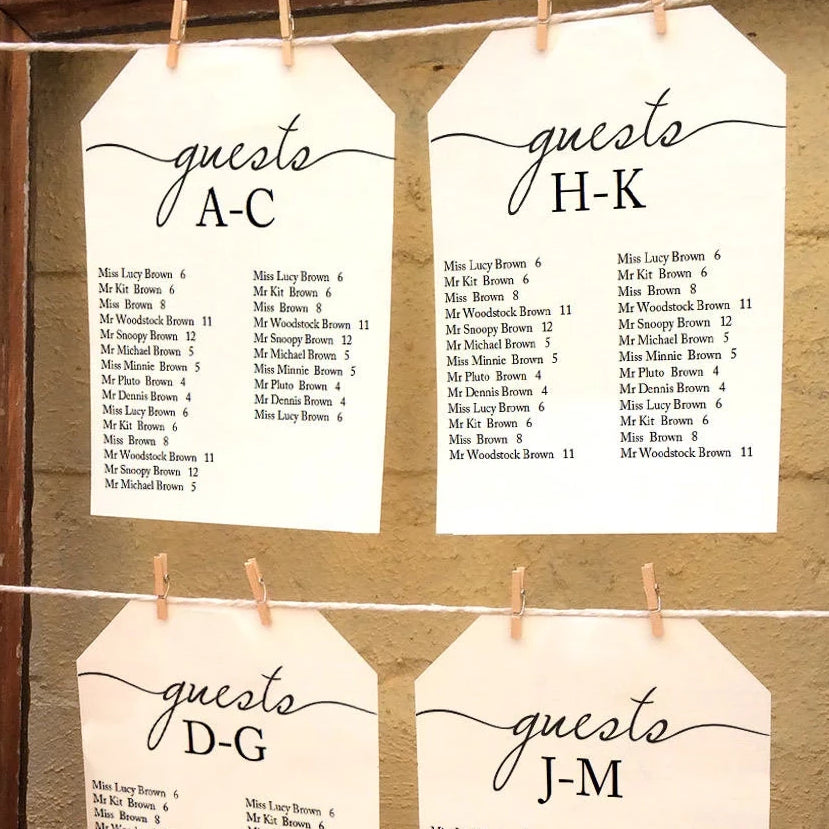 guests
A-C
Miss Lucy Brown 6
Mr Kit Brown 6
Miss Brown 8
Mr Woodstock Brown 11
Mr Snoopy Brown 12
Mr Michael Brown 5
Miss Minnie Brown 5
Mr Pluto Brown 4
Mr Dennis Brown 4
Miss Lucy Brown 6
Mr Kit Brown 6
Miss Brown 8
Mr Woodstock Brown 11
Mr Snoopy Brown 12
Mr Michael Brown 5
Miss Lucy Brown 6
Mr Kit Brown 6
Miss Brown 8
Mr Woodstock Brown 11
Mr Snoopy Brown 12
Mr Michael Brown 5
Miss Minnie Brown 5
Mr Pluto Brown 4
Mr Dennis Brown 4
Miss Lucy Brown 6
guests
H-K
Miss Lucy Brown 6
Mr Kit Brown 6
Miss Brown 8
Mr Woodstock Brown 11
Mr Snoopy Brown 12
Mr Michael Brown 5
Miss Minnie Brown 5
Mr Pluto Brown 4
Mr Dennis Brown 4
Miss Lucy Brown 6
Mr Kit Brown 6
Miss Brown 8
Mr Woodstock Brown 11
Miss Lucy Brown 6
Mr Kit Brown 6
Miss Brown 8
Mr Woodstock Brown 11
Mr Snoopy Brown 12
Mr Michael Brown 5
Miss Minnie Brown 5
Mr Pluto Brown 4
Mr Dennis Brown 4
Miss Lucy Brown 6
Mr Kit Brown 6
Miss Brown 8
Mr Woodstock Brown 11
guests
D-G
Miss Lucy Brown 6
Mr Kit Brown 6
Miss Brown 8
Miss Lucy Brown 6
Mr Kit Brown 6
guests
J-M